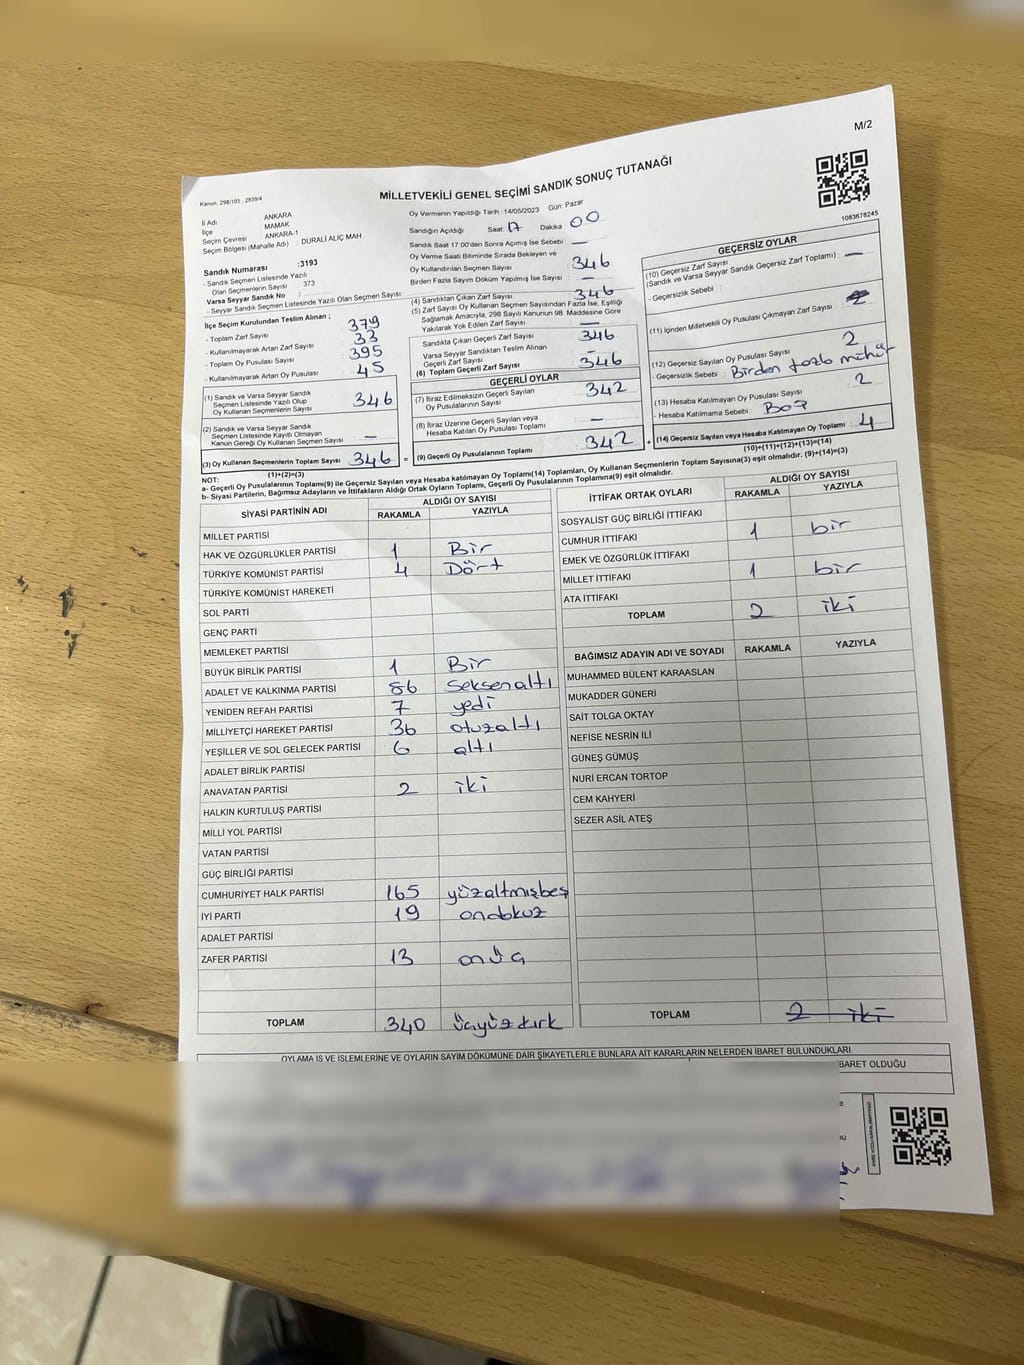 M/2
Kanun: 298/105 , 2839/4
MİLLETVEKİLİ GENEL SEÇİMİ SANDIK SONUÇ TUTANAĞI
1083678245
İl Adı ANKARA
İlçe MAMAK
Seçim Çevresi ANKARA-1
Seçim Bölgesi (Mahalle Adı) : DURALİ ALIÇ MAH.
Sandık Numarası :3193
- Sandık Seçmen Listesinde Yazılı
Olan Seçmenlerin Sayısı : 373
Varsa Seyyar Sandık No :
- Seyyar Sandık Seçmen Listesinde Yazılı Olan Seçmen Sayısı
İlçe Seçim Kurulundan Teslim Alınan ;
- Toplam Zarf Sayısı 379
- Kullanılmayarak Artan Zarf Sayısı 33
- Toplam Oy Pusulası Sayısı 395
- Kullanılmayarak Artan Oy Pusulası 45
(1) Sandık ve Varsa Seyyar Sandık
Seçmen Listesinde Yazılı Olup
Oy Kullanan Seçmenlerin Sayısı 346
(2) Sandık ve Varsa Seyyar Sandık
Seçmen Listesinde Kayıtlı Olmayan
Kanun Gereği Oy Kullanan Seçmen Sayısı —
(3) Oy Kullanan Seçmenlerin Toplam Sayısı 346 =
(1)+(2)=(3)
Oy Vermenin Yapıldığı Tarih : 14/05/2023 Gün: Pazar
Sandığın Açıldığı Saat: 17 Dakika 00
Sandık Saat 17:00'den Sonra Açımış İse Sebebi —
Oy Verme Saati Bitiminde Sırada Bekleyen ve
Oy Kullandırılan Seçmen Sayısı 346
Birden Fazla Sayım Döküm Yapılmış İse Sayısı : —
(4) Sandıktan Çıkan Zarf Sayısı 346
(5) Zarf Sayısı Oy Kullanan Seçmen Sayısından Fazla İse, Eşitliği
Sağlamak Amacıyla, 298 Sayılı Kanunun 98. Maddesine Göre
Yakılarak Yok Edilen Zarf Sayısı —
Sandıkta Çıkan Geçerli Zarf Sayısı 346
Varsa Seyyar Sandıktan Teslim Alınan
Geçerli Zarf Sayısı —
(6) Toplam Geçerli Zarf Sayısı 346
GEÇERLİ OYLAR
(7) İtiraz Edilmeksizin Geçerli Sayılan
Oy Pusulalarının Sayısı 342
(8) İtiraz Üzerine Geçerli Sayılan veya
Hesaba Katılan Oy Pusulası Toplamı —
(9) Geçerli Oy Pusulalarının Toplamı 342 +
GEÇERSİZ OYLAR
(10) Geçersiz Zarf Sayısı
(Sandık ve Varsa Seyyar Sandık Geçersiz Zarf Toplamı) : —
- Geçersizlik Sebebi :
(11) İçinden Milletvekili Oy Pusulası Çıkmayan Zarf Sayısı
(12) Geçersiz Sayılan Oy Pusulası Sayısı 2
- Geçersizlik Sebebi : Birden fazla mühür
(13) Hesaba Katılmayan Oy Pusulası Sayısı 2
- Hesaba Katılmama Sebebi : Boş
(14) Geçersiz Sayılan veya Hesaba Katılmayan Oy Toplamı : 4
(10)+(11)+(12)+(13)=(14)
NOT:
a- Geçerli Oy Pusulalarının Toplamı(9) ile Geçersiz Sayılan veya Hesaba katılmayan Oy Toplamı(14) Toplamları, Oy Kullanan Seçmenlerin Toplam Sayısına(3) eşit olmalıdır. (9)+(14)=(3)
b- Siyasi Partilerin, Bağımsız Adayların ve İttifakların Aldığı Ortak Oyların Toplamı, Geçerli Oy Pusulalarının Toplamına(9) eşit olmalıdır.
SİYASİ PARTİNİN ADI ALDIĞI OY SAYISI
RAKAMLA YAZIYLA
MİLLET PARTİSİ
HAK VE ÖZGÜRLÜKLER PARTİSİ 1 Bir
TÜRKİYE KOMÜNİST PARTİSİ 4 Dört
TÜRKİYE KOMÜNİST HAREKETİ
SOL PARTİ
GENÇ PARTİ
MEMLEKET PARTİSİ
BÜYÜK BİRLİK PARTİSİ 1 Bir
ADALET VE KALKINMA PARTİSİ 86 Seksenaltı
YENİDEN REFAH PARTİSİ 7 yedi
MİLLİYETÇİ HAREKET PARTİSİ 36 otuzaltı
YEŞİLLER VE SOL GELECEK PARTİSİ 6 altı
ADALET BİRLİK PARTİSİ
ANAVATAN PARTİSİ 2 iki
HALKIN KURTULUŞ PARTİSİ
MİLLİ YOL PARTİSİ
VATAN PARTİSİ
GÜÇ BİRLİĞİ PARTİSİ
CUMHURİYET HALK PARTİSİ 165 yüzaltmışbeş
İYİ PARTİ 19 ondokuz
ADALET PARTİSİ
ZAFER PARTİSİ 13 onüç
TOPLAM 340 üçyüzkırk
İTTİFAK ORTAK OYLARI ALDIĞI OY SAYISI
RAKAMLA YAZIYLA
SOSYALİST GÜÇ BİRLİĞİ İTTİFAKI
CUMHUR İTTİFAKI 1 bir
EMEK VE ÖZGÜRLÜK İTTİFAKI
MİLLET İTTİFAKI 1 bir
ATA İTTİFAKI
TOPLAM 2 iki
BAĞIMSIZ ADAYIN ADI VE SOYADI RAKAMLA YAZIYLA
MUHAMMED BÜLENT KARAASLAN
MUKADDER GÜNERİ
SAİT TOLGA OKTAY
NEFİSE NESRİN İLİ
GÜNEŞ GÜMÜŞ
NURİ ERCAN TORTOP
CEM KAHYERİ
SEZER ASİL ATEŞ
TOPLAM 2 iki
OYLAMA İŞ VE İŞLEMLERİNE VE OYLARIN SAYIM DÖKÜMÜNE DAİR ŞİKAYETLERLE BUNLARA AİT KARARLARIN NELERDEN İBARET BULUNDUKLARI
BARET OLDUĞU